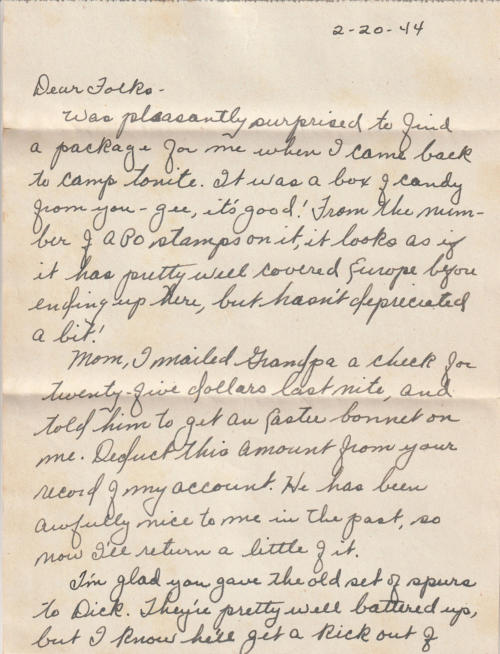 2-20-44
Dear Folks-
Was pleasantly surprised to find
a package for me when I came back
to camp tonite. It was a box of candy
from you - gee, it's good! From the num-
ber of APO stamps on it, it looks as if
it has pretty well covered Europe before
ending up here, but hasn't depreciated
a bit!
Mom, I mailed Grandpa a check for
twenty-five dollars last nite, and
told him to get an Easter bonnet on
me. Deduct this amount from your
record of my account. He has been
awfully nice to me in the past, so
now I'll return a little of it.
I'm glad you gave the old set of spurs
to Dick. They're pretty well battered up,
but I know he'll get a kick out of